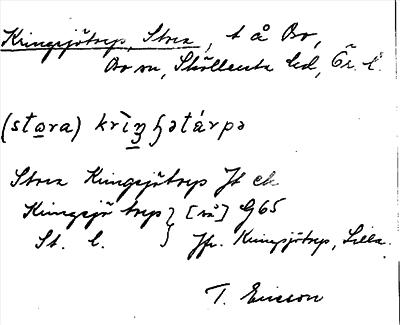 Kringsjötorp, Stora, t å Bo,
Bo sn, Sköllersta hd, Ör. l.
(stωra) krìŋʃətárpə
Stora Kringsjötorp Jt ek
Kringsjö torp } [nå] G65
St. l. } Jfr. Kringsjötorp, Lilla.
T. Ericson